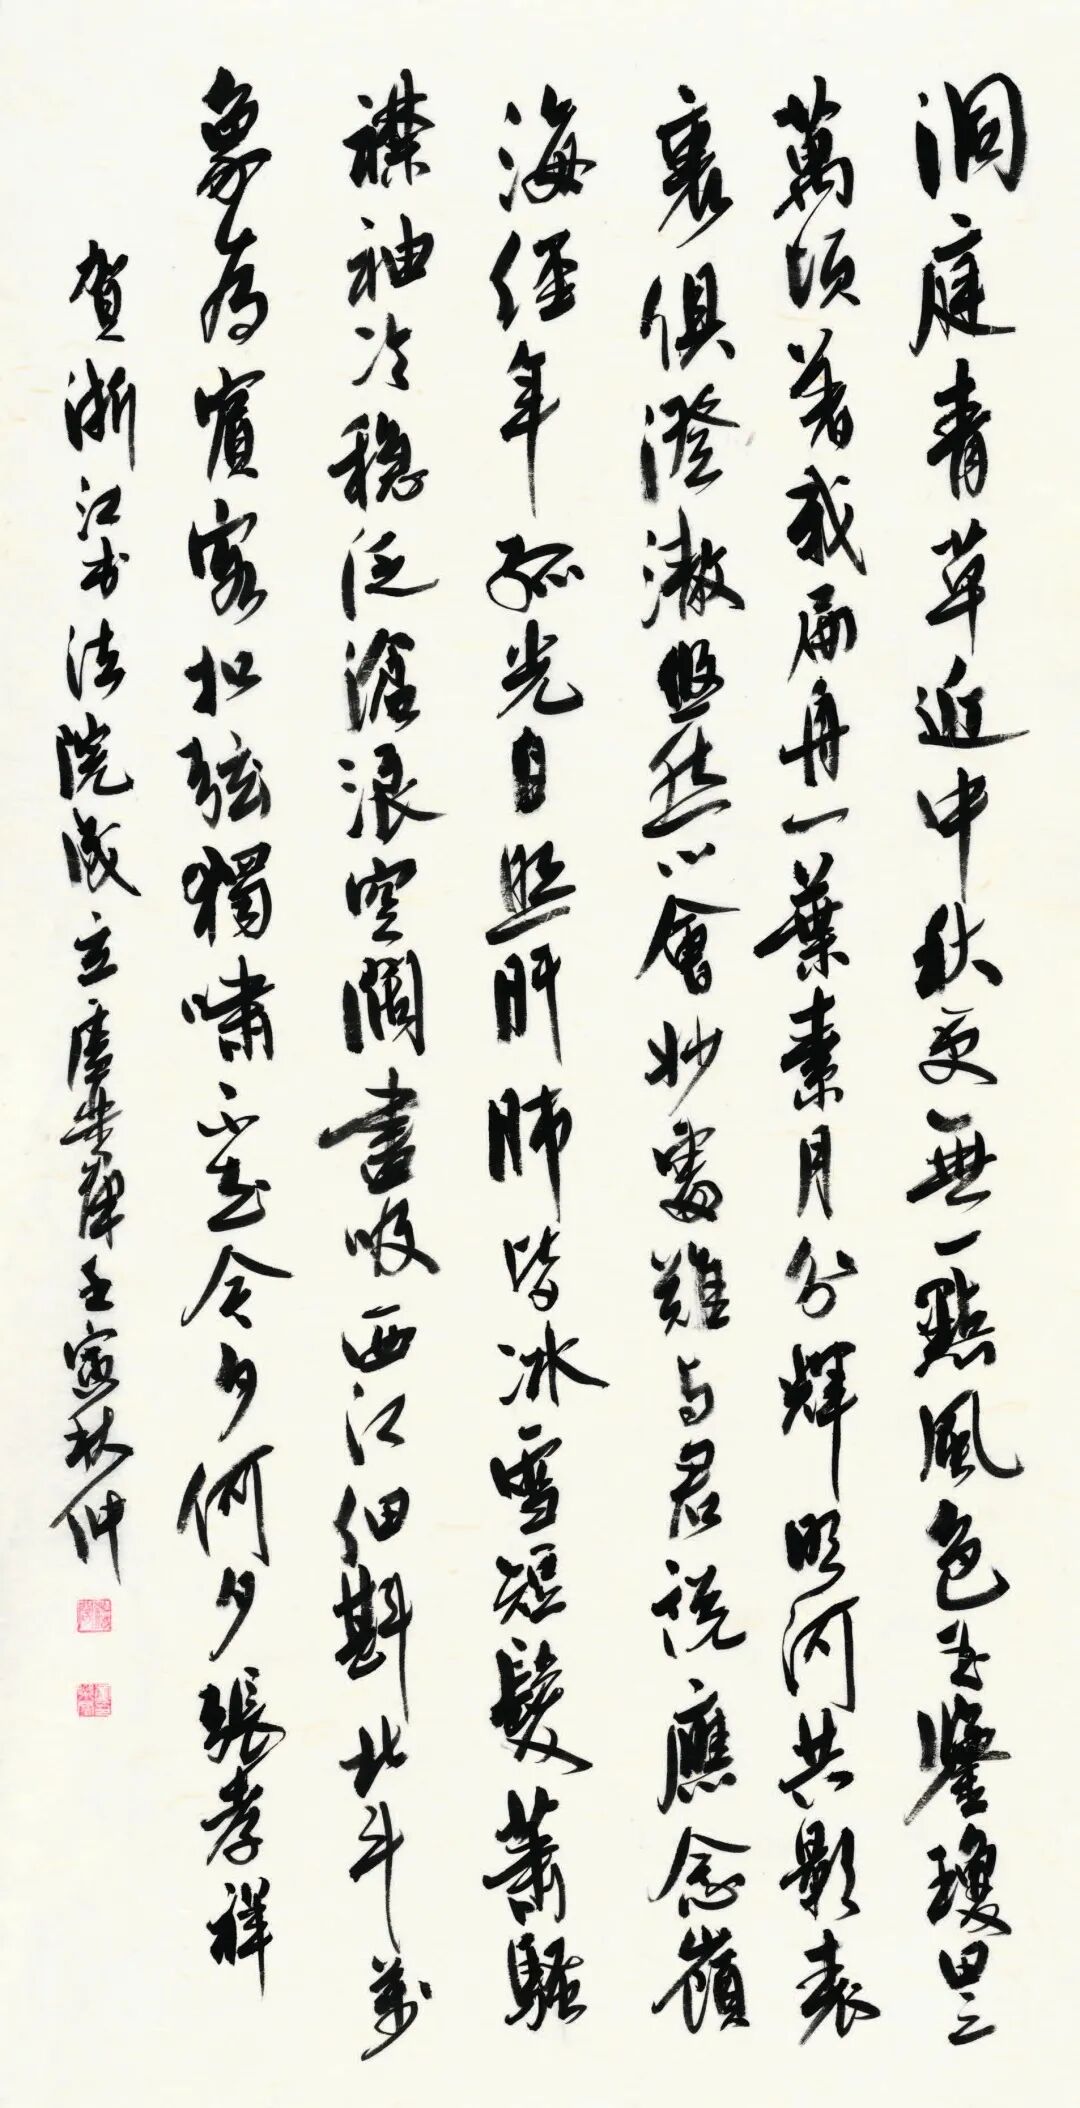 洞庭青草近中秋更無一點風色玉鑒瓊田三
萬頃著我扁舟一葉素月分輝明河共影表
裏俱澄澈悠然心會妙處難与君説應念嶺
海經年孤光自照肝肺皆冰雪短髮蕭騷
襟袖冷穩泛滄浪空闊盡吸西江細斟北斗萬
象為賓客扣弦獨嘯不知今夕何夕張孝祥
贺浙江书法院成立
壬寅秋仲